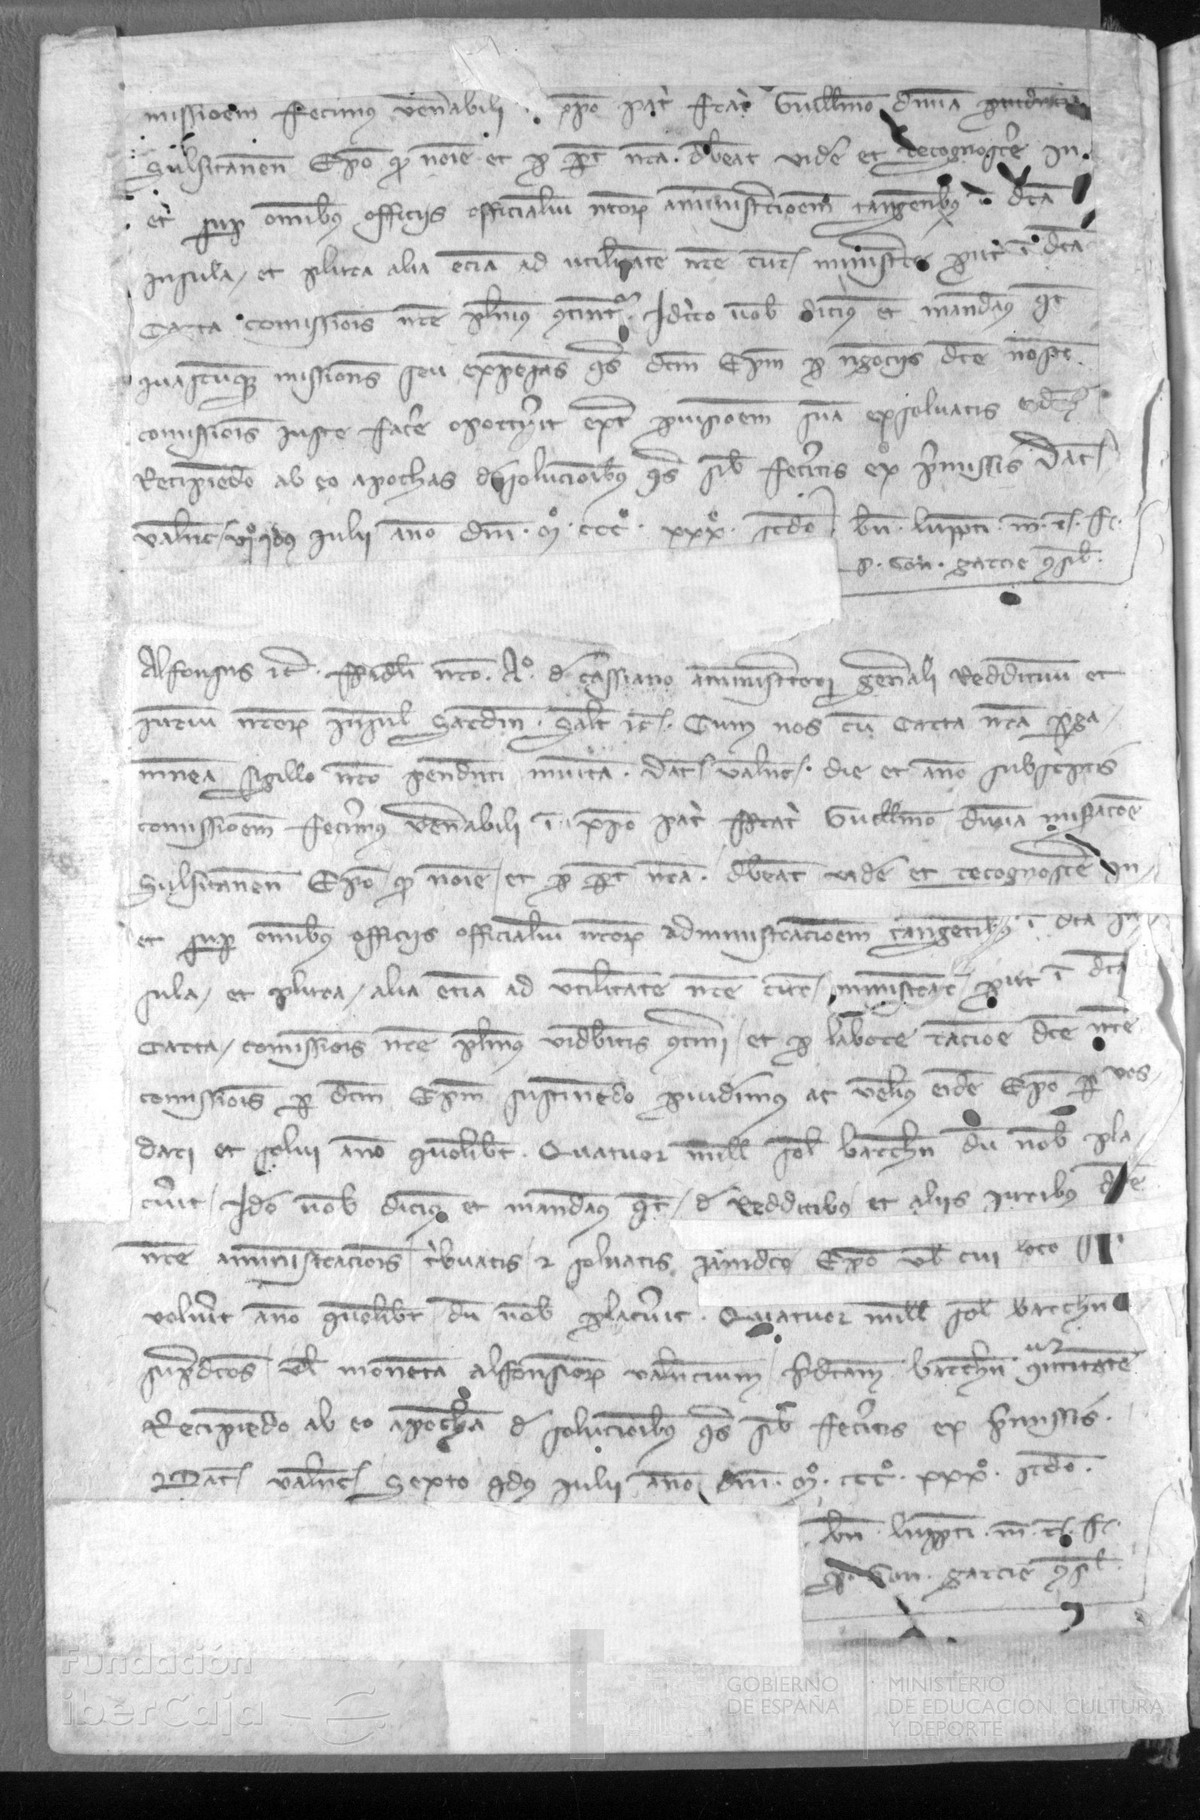 missioem fecimus venabili . xpo pat̄ frat̄ Guillmo diuīa
Sulsitanen Epo qd noīe et p pte nra . debeat vidē et recognoscere in
et sup omībus officiis officialiū nrorum amministracioem tangentibus ī dcā
insula / et plura alia eciā ad utilitate nre curie ministrare put ī dcā
Carta comissiois nre plenius continetur . Idcirco uob dicimus et mandamus qt
quascumque missiones seu expensas qs dcm Epm p negociis dce nostre
comissiois iuste facere oportuerit ept prouisioem suā exsoluatis eidem
Recipiendo ab eo apochas de solucioibus qs sibi feceritis ex premissis Dat
Valenc VIº idus iulii año dni . mº . cccº . xxxº . scdo . bñ . luppeti . m . r . fc .
p . Gon . garcie consil .
Alfonsus etc . ffideli nro . Aº . de cassiano amministratori generali Reddituum et
iuriū nrorum insule Sardin . Salt etc . Cum nos cū Carta nrā perga
mineā sigillo nro pendenti munitā . dat Valenc . die et año subscriptis
comissioem fecimus venabili ī xpo pat̄ ffrat̄ Guillmo diuīa miseracoe
Sulsitanen Epo qd noīe et p pte nrā . debeat vidē et recognoscere in
et sup omībus officiis officialiū nrorum administracioem tangentibus ī dcā in
sula / et plura / alia eciā ad utilitate nre curie / ministrare put ī dcā
Carta / comissiois nre plenius videbitis contineri / et p labore racioe dce nre
comissiois p dcm Epm sustinendo prouidimus ac volumus eidē Epo p vos
dari et solui año quolibet . Quatuor mill sol barchn dū nob pla
cuerit / Ideo uob dicimus et mandamus qt / de Redditibus et aliis iuribus dce
nre amministracionis tribuatis et soluatis iamdco Epo vl cui loco sui
voluerit año quolibet / dū nob placuerit . Quatuor mill sol barchn
supradcos / vl moneta alfonsiorum valencium / predictam barchn quantitate
Recipiendo ab eo apocham de solucioibus qs sibi feceritis ex premissis .
Dat Valenc Sexto idus iulii año dni . mº . cccº . xxxº . scdo .
bñ . luppeti . m . r . fc .
p . Gon . garcie consil .
Fundación
iberCaja
GOBIERNO
DE ESPAÑA
MINISTERIO
DE EDUCACIÓN, CULTURA
Y DEPORTE